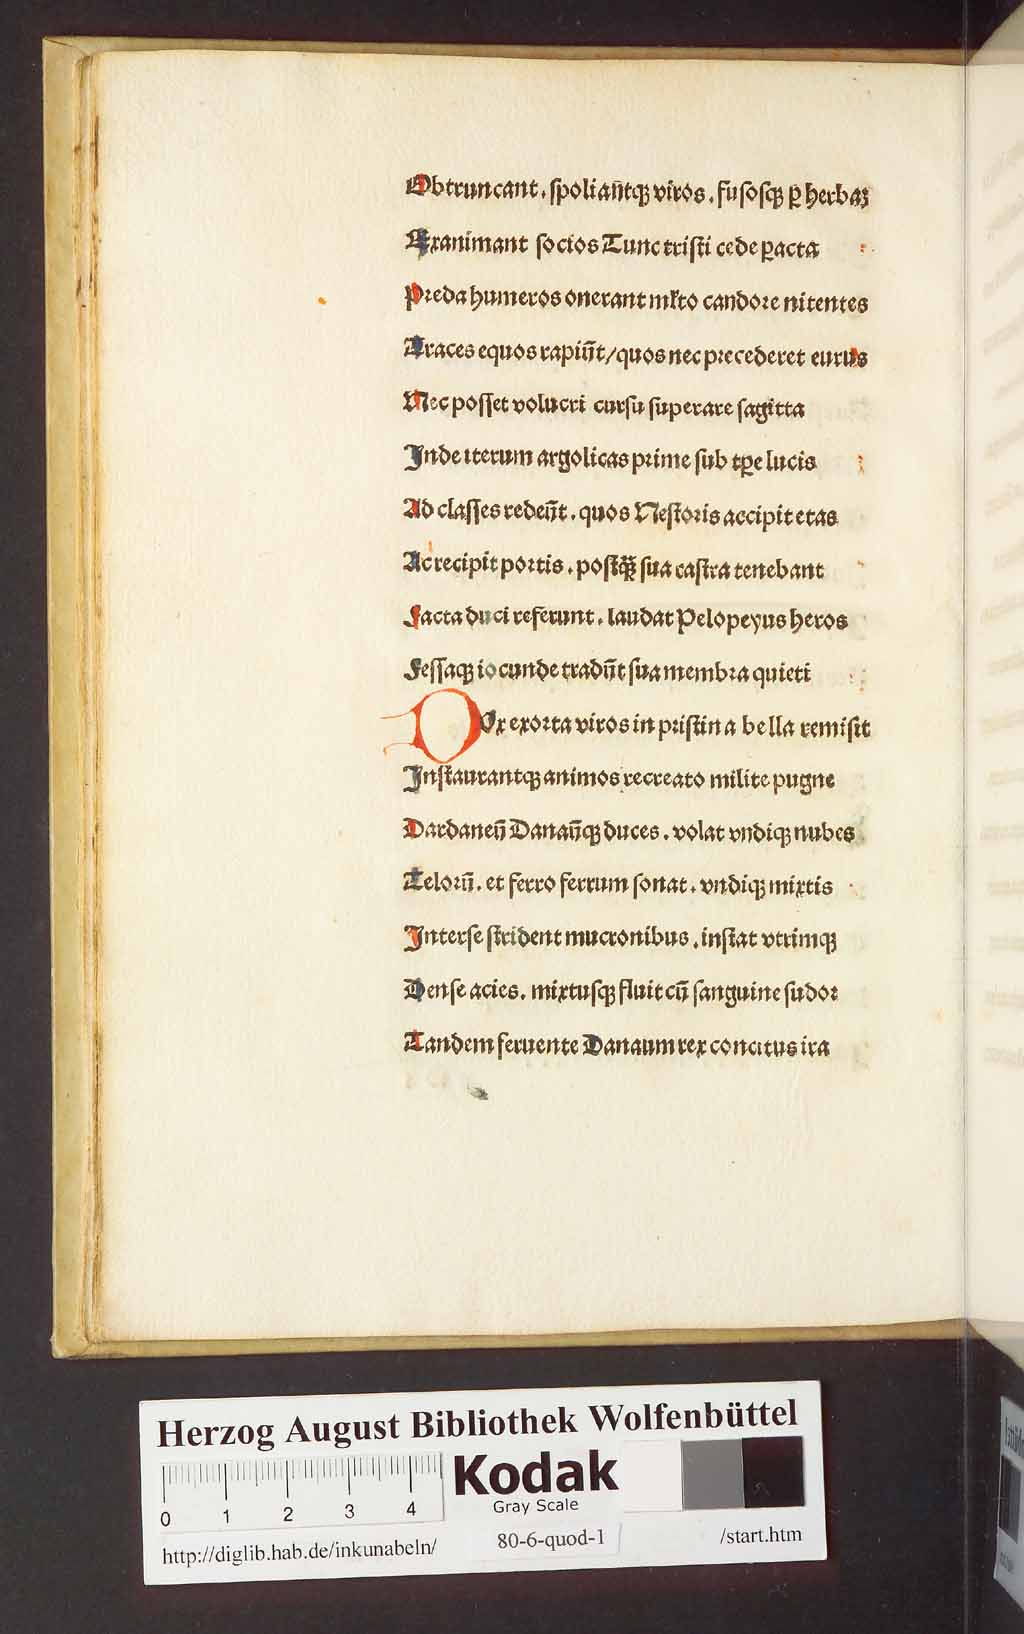 Obtruncant. spoliãntqꝫ viros. fusosqꝫ ꝑ herbaꝫ
Exanimant socios Tunc tristi cede ꝑacta
Preda humeros onerant mĩto candore nitentes
Traces equos rapiũt/quos nec precederet eurus
Nec posset volucri cursu superare sagitta
Inde iterum argolicas prime sub tꝑe lucis
Ad classes redeũt. quos Nestoris accipit etas
Ac recipit portis. postq̃ꝫ sua castra tenebant
Facta duci referunt. laudat Pelopeyus heros
Fessaqꝫ iocunde tradũt sua membra quieti
Ox exorta viros in pristina bella remisit
Instaurantqꝫ animos recreato milite pugne
Dardaneũ Danaũqꝫ duces. volat vndiqꝫ nubes
Telorũ. et ferro ferrum sonat. vndiqꝫ mixtis
Interse strident mucronibus. instat vtrimqꝫ
Dense acies. mixtusqꝫ fluit cũ sanguine sudor
Tandem feruente Danaum rex concitus ira
Herzog August Bibliothek Wolfenbüttel
Kodak
Gray Scale
0 1 2 3 4
http://diglib.hab.de/inkunabeln/ 80-6-quod-1 /start.htm